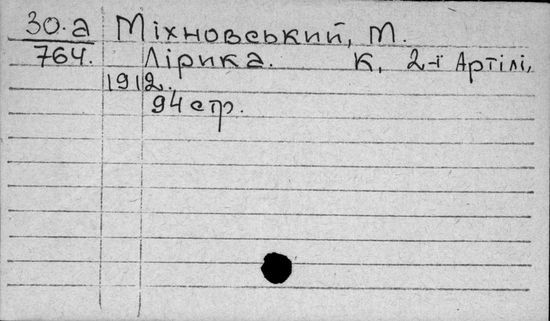 30.а Міхновський, М.
764. Лірика. К, 2-ї Артілі,
1912.
94 стр.